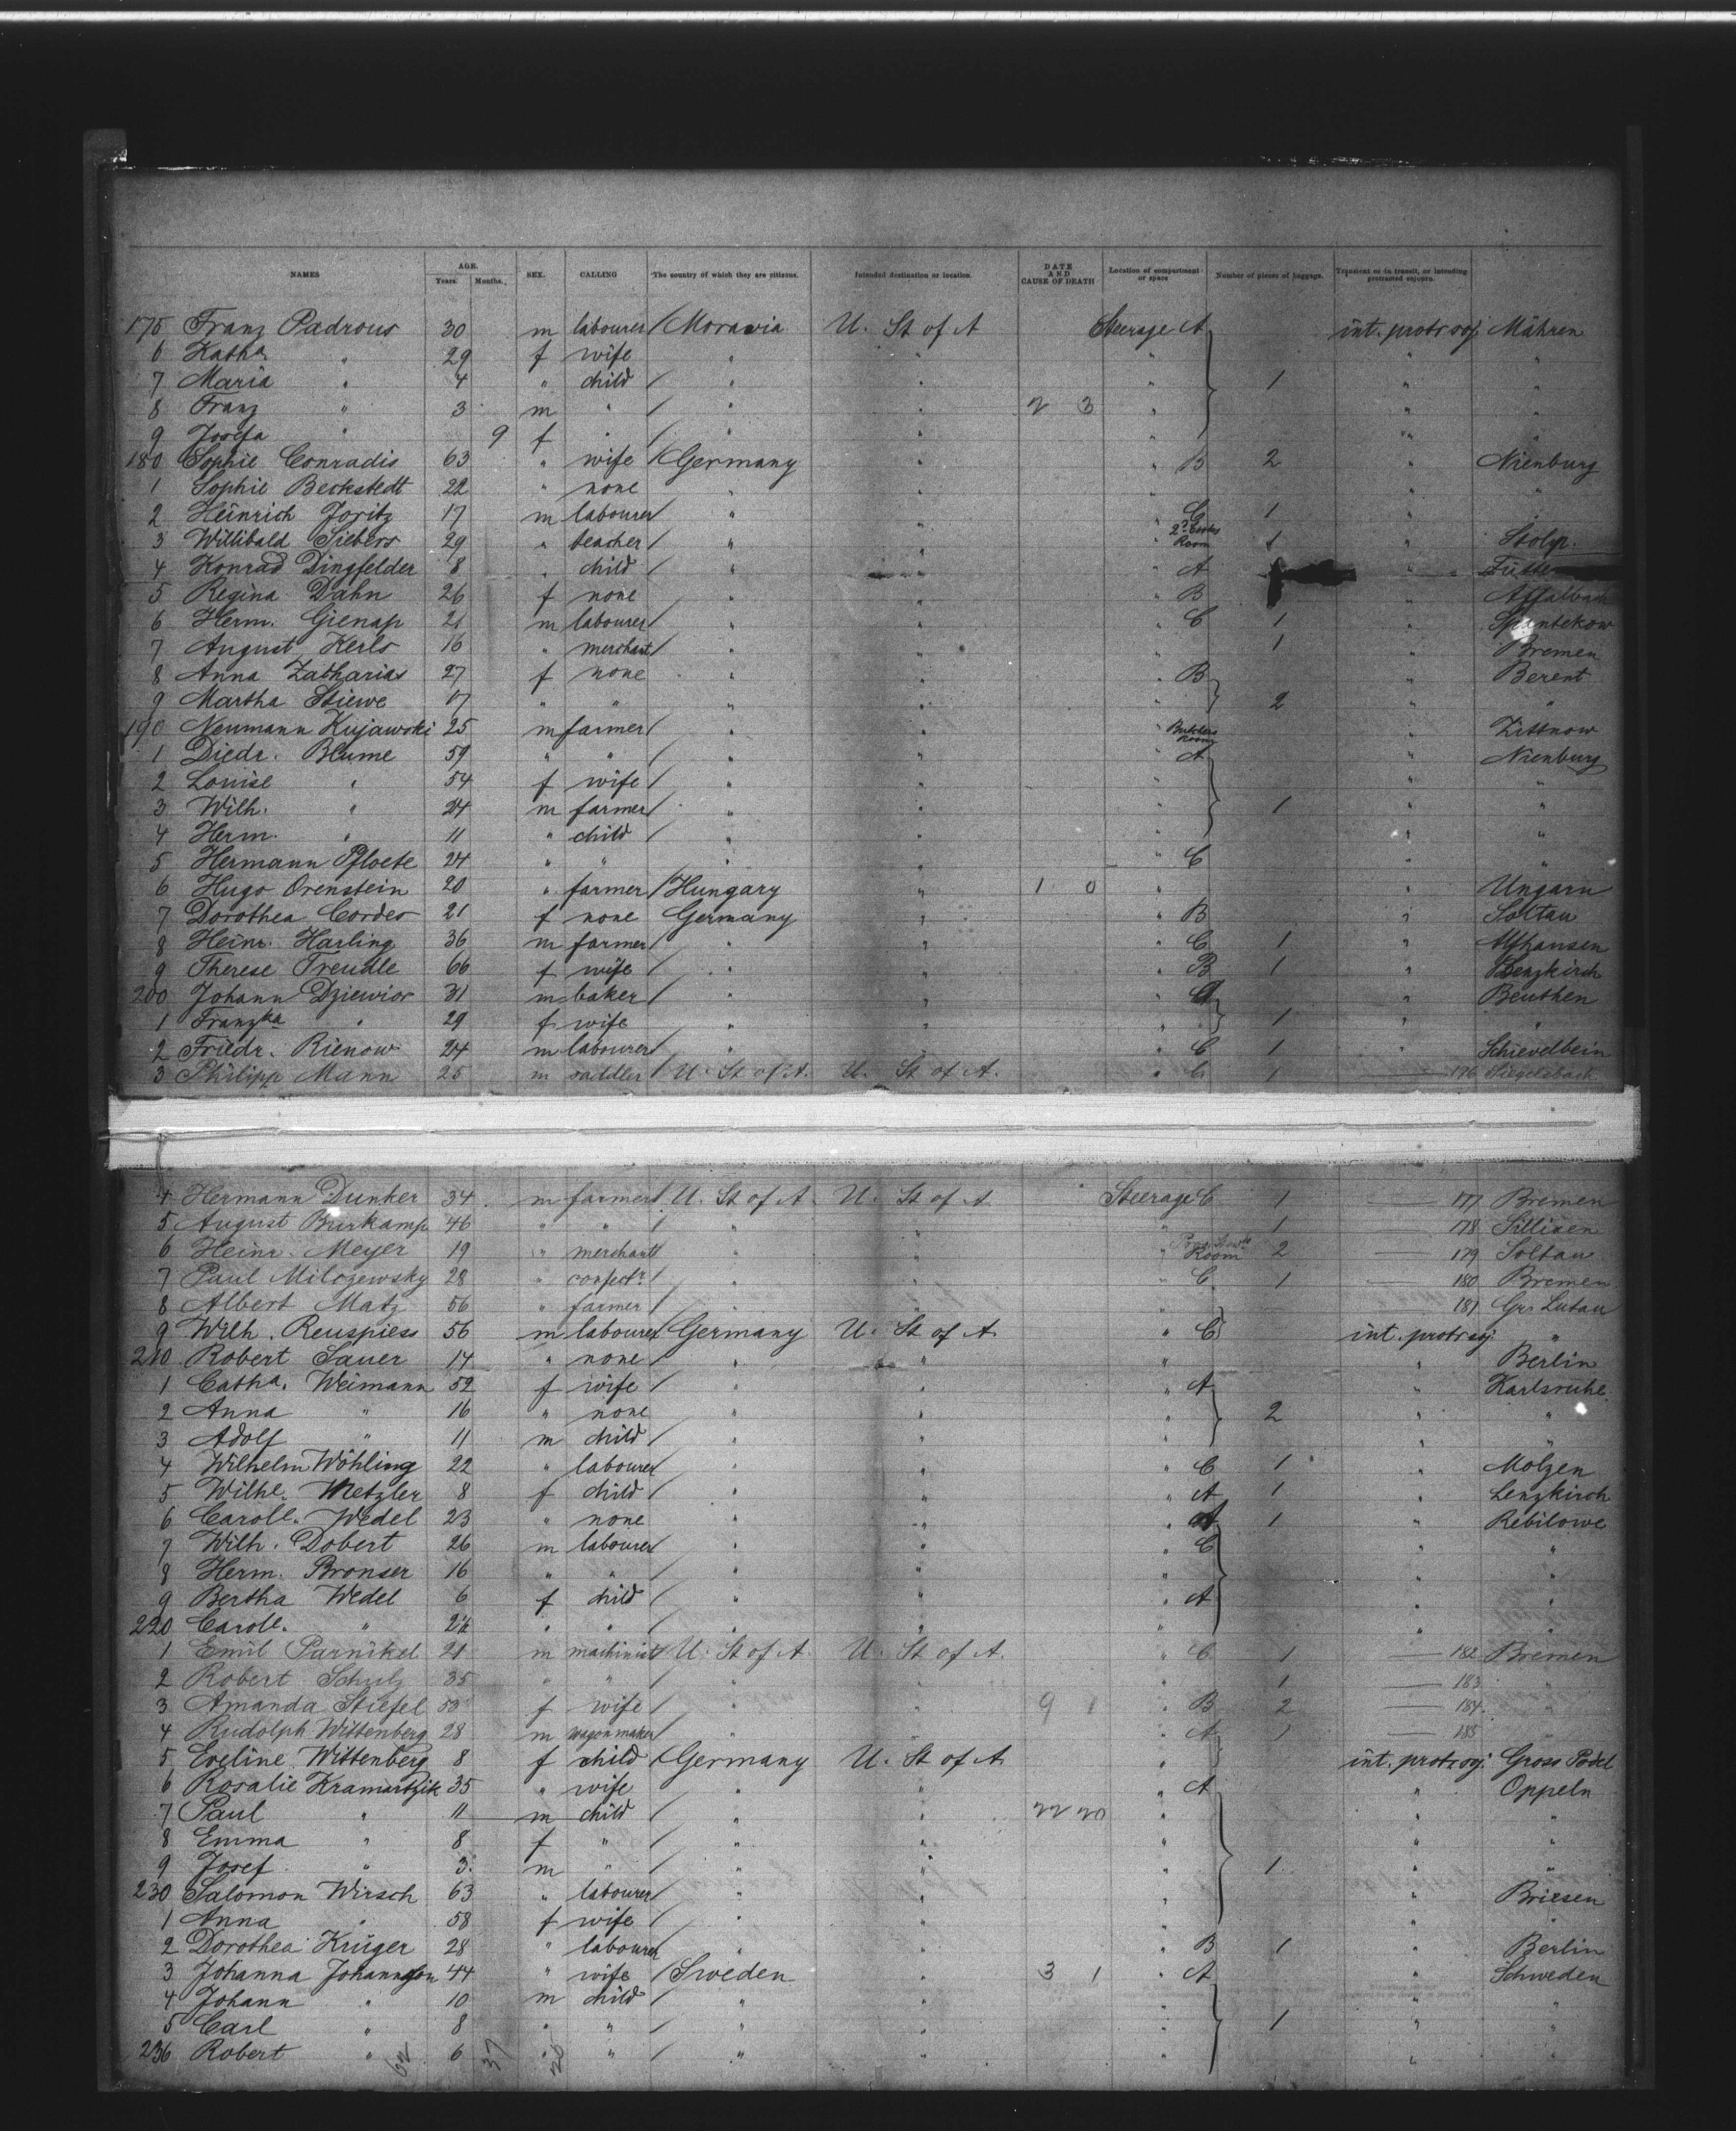 NAMES AGE. Years. Months. SEX. CALLING The country of which they are citizens. Intended destination or location. DATE AND CAUSE OF DEATH Location of compartment or space Number of pieces of baggage. Transient or in transit, or intending protracted sojourn.
175 Franz Padrous 30 m labourer / Moravia U. St of A Steerage A int. protr. soj. Mähren
6 Katha. " 29 f wife " " " " "
7 Maria " 4 " child / " " " 1 " "
8 Franz " 3 m " / " " 2 3 " " "
9 Josefa " 9 f " / " " " " "
180 Sophie Conradis 63 " wife / Germany " " B 2 " Nienburg
1 Sophie Beckstedt 22 " none " " " " "
2 Heinrich Joritz 17 m labourer / " " " C 1 " "
3 Willibald Siebers 29 " teacher / " " " Room 1 " Stolp.
4 Konrad Dingfelder 8 " child / " " " A "
5 Regina Dahn 26 f none " " " B "
6 Herm. Gienap 21 m labourer / " " " C 1 " Spantekow
7 August Kerls 16 " merchant / " " " 1 " Bremen
8 Anna Zacharias 27 f none " " " B " Berent
9 Martha Stiewe 17 " " " " " 2 " "
190 Neumann Kujawski 25 m farmer / " " " Butchers Room " Zittnow
1 Diedr. Blume 59 " " / " " " A " Nienburg
2 Louise " 54 f wife / " " " " "
3 Wilh. " 24 m farmer / " " " 1 " "
4 Herm. " 11 " child / " " " " "
5 Hermann Pfloete 24 " " " " " C " "
6 Hugo Orenstein 20 " farmer / Hungary " 1 0 " " Ungarn
7 Dorothea Cordes 21 f none Germany " " B " Soltau
8 Heinr. Harling 36 m farmer / " " " C 1 " Alfhausen
9 Therese Treudle 66 f wife / " " " B 1 " Lenzkirch
200 Johann Dziewior 31 m baker / " " " A " Beuthen
1 Franzka " 29 f wife " " " 1 " "
2 Friedr. Rienow 24 m labourer / " " " C 1 " Schievelbein
3 Philipp Mann 25 m saddler / U. St of A. U. St of A. " C 1 — 176 Siegelsbach
4 Hermann Dunker 34 m farmer / U. St of A. U. St of A Steerage C 1 — 177 Bremen
5 August Burkamp 46 " " / " " " 1 — 178
6 Heinr. Meyer 19 " merchant / " " " Room 2 — 179 Soltau
7 Paul Milozewsky 28 " confectr / " " " C 1 — 180 Bremen
8 Albert Matz 56 " farmer / " " " — 181 Gr. Lutau
9 Wilh. Reuspiess 56 m labourer Germany U. St of A. " C int. protr. soj. "
210 Robert Sauer 14 " none / " " " " Berlin
1 Catha. Weimann 52 f wife / " " " A " Karlsruhe
2 Anna " 16 " none " " " 2 " "
3 Adolf " 11 m child / " " " " "
4 Wilhelm Wöhling 22 " labourer / " " " C 1 " Mölzen
5 Wilhe. Metzler 8 f child / " " " A 1 " Lenzkirch
6 Caroll. Wedel 23 " none " " " A 1 " Rebilowe
7 Wilh. Dobert 26 m labourer / " " " C " "
8 Herm. Bronser 16 " " / " " " " "
9 Bertha Wedel 6 f child / " " " A " "
220 Caroll. " " " / " " " " "
1 Emil Parnikel 21 m machinist / U. St of A. U. St of A. " C 1 — 182 Bremen
2 Robert Schulz 35 " " / " " " 1 — 183 "
3 Amanda Stiefel 53 f wife / " " 9 1 " B 2 — 184 "
4 Rudolph Wittenberg 28 m wagonmaker / " " " A 1 — 185 "
5 Eveline Wittenberg 8 f child / Germany U. St of A. " int. protr. soj. Gross Podel
6 Rosalie Kramartzik 35 " wife " " " A " Oppeln
7 Paul " 11 m child / " " 22 20 " " "
8 Emma " 8 f " / " " " " "
9 Josef " 3 m " / " " " 1 " "
230 Salomon Wirsch 63 " labourer / " " " " Briesen
1 Anna " 58 f wife / " " " " "
2 Dorothea Krüger 28 " labourer " " " B 1 " Berlin
3 Johanna Johannsson 44 " wife / Sweden " 3 1 " A " Schweden
4 Johann " 10 m child / " " " " "
5 Carl " 8 " " / " " " 1 " "
236 Robert " 6 " " / " " " " "
62 37